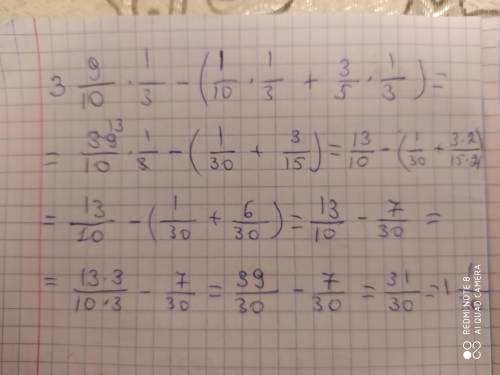 3 9/10 · 1/3 − (1/10 · 1/3 + 3/5 · 1/3) =
= 39/10 13 · 1/3 − (1/30 + 3/15) = 13/10 − (1/30 + 3·2/15·2)
= 13/10 − (1/30 + 6/30) = 13/10 − 7/30 =
= 13·3/10·3 − 7/30 = 39/30 − 7/30 = 31/30 = 1
REDMI NOTE 8
AI QUAD CAMERA